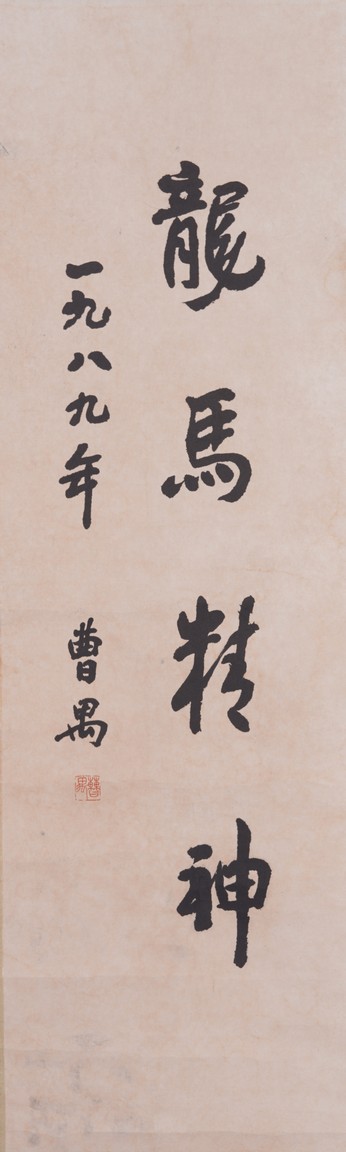 龍馬精神
一九八九年 曹禺